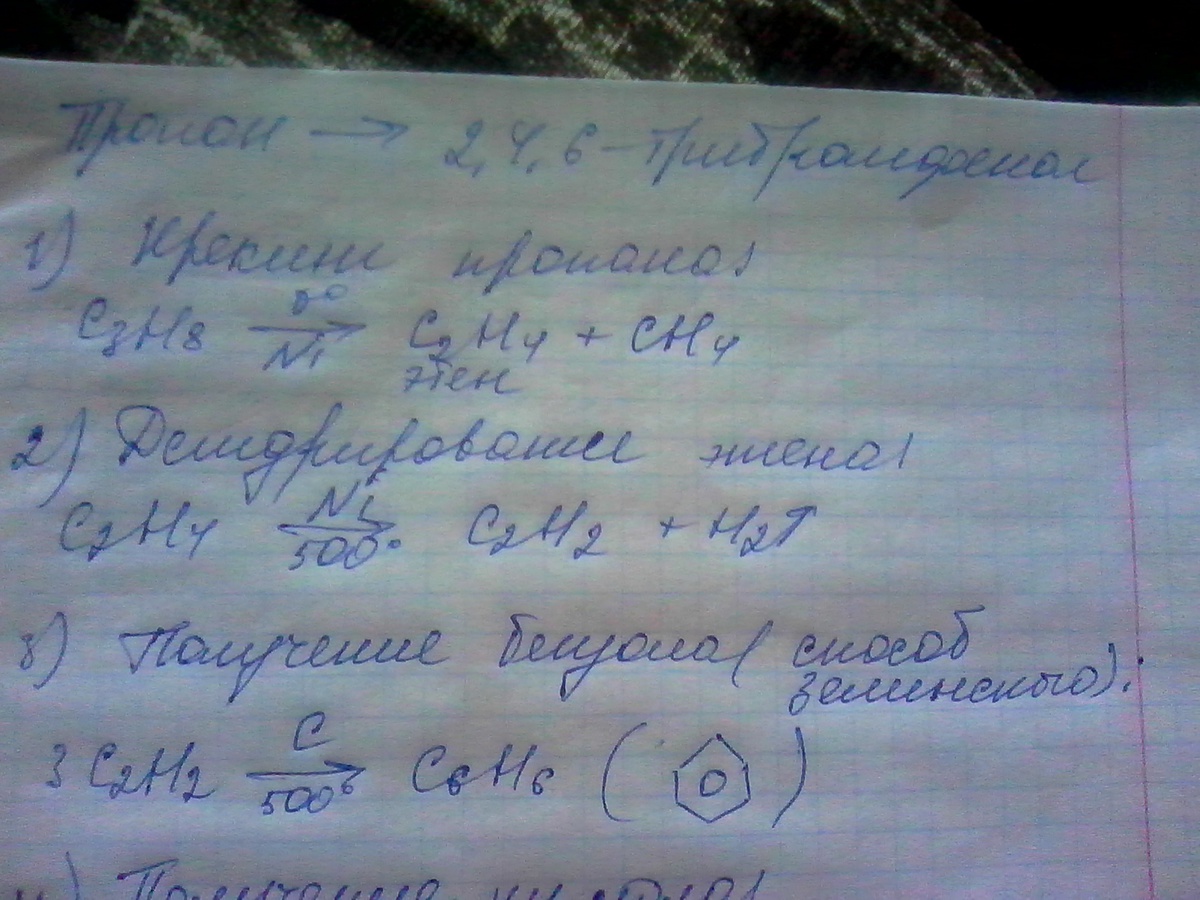 Пропан → 2,4,6-трибромфенол
1) Крекинг пропана:
C3H8 →(t°, Ni) C2H4 + CH4
этен
2) Дегидрирование этена:
C2H4 →(Ni, 500°) C2H2 + H2↑
3) Получение бензола (способ
Зелинского):
3C2H2 →(C, 500°) C6H6 ( )
4) Получение